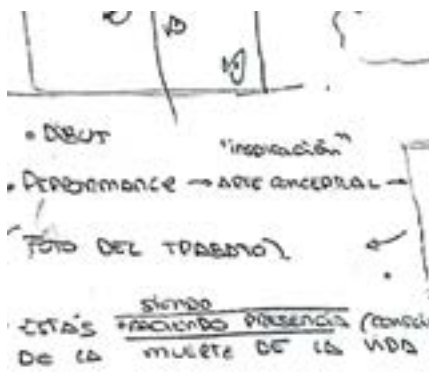 • DIBUT
"inspiración"
• PERFORMANCE → ARTE CONCEPTUAL →
FOTO DEL TRABAJO)
siendo
• ESTÁS HACIENDO PRESENCIA (CONSCI
DE LA MUERTE DE LA VIDA